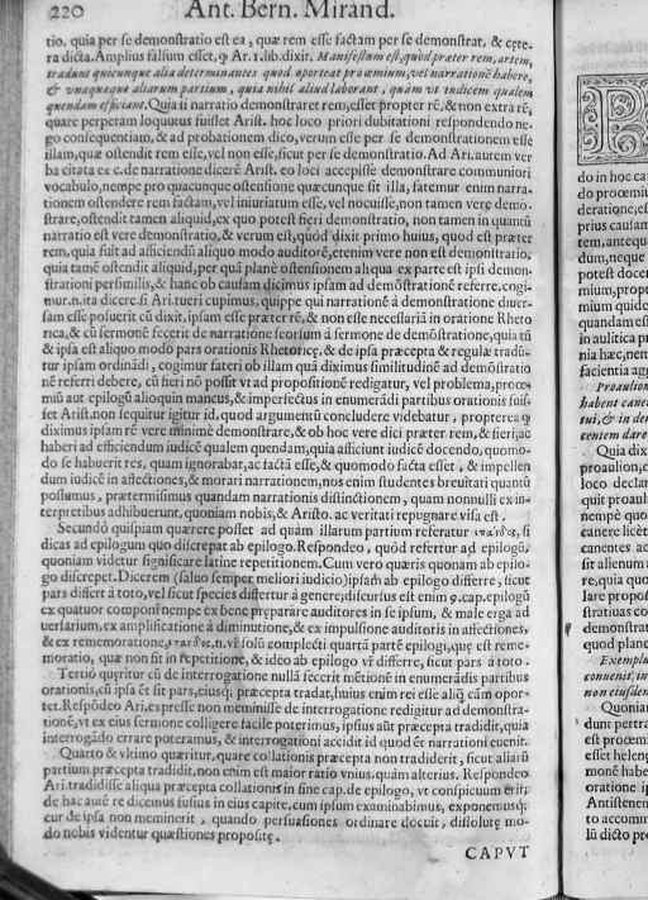 220 Ant. Bern. Mirand.
tio. quia per se demonstratio est ea, quæ rem esse factam per se demonstrat, & cęte-
ra dicta. Amplius falsum esset, ꝙ Ar. 1. lib. dixit. Manifestum est, quòd præter rem, artem,
tradunt quicunque alia determinantes quod oporteat proœmium, vel narrationē habere,
& vnaquæque aliarum partium, quia nihil aliud laborant, quàm vt iudicem qualem
quendam efficiant. Quia si narratio demonstraret rem, esset propter rē, & non extra rē,
quare perperam loquutus fuisset Arist. hoc loco priori dubitationi respondendo ne-
go consequentiam, & ad probationem dico, verum esse per se demonstrationem esse
illam, quæ ostendit rem esse, vel non esse, sicut per se demonstratio. Ad Ari. autem ver
ba citata ex c. de narratione dicerē Arist. eo loci accepisse demonstrare communiori
vocabulo, nempe pro quacunque ostensione quæcunque sit illa, fatemur enim narra-
tionem ostendere rem factam, vel iniuriatum esse, vel nocuisse, non tamen verè demo-
strare, ostendit tamen aliquid, ex quo potest fieri demonstratio, non tamen in quantū
narratio est vere demonstratio, & verum est, quòd dixit primo huius, quod est præter
rem, quia fuit ad afficiendū aliquo modo auditorē, etenim vere non est demonstratio,
quia tamē ostendit aliquid, per quā planè ostensionem aliqua ex parte est ipsi demon-
strationi persimilis, & hanc ob causam dicimus ipsam ad demōstrationē referre. cogi-
mur. n. ita dicere si Ari. tueri cupimus, quippe qui narrationē à demonstratione diuer-
sam esse posuerit cū dixit, ipsam esse præter rē, & non esse necessariā in oratione Rheto
rica, & cū sermonē fecerit de narratione seorsum à sermone de demōstratione, quia tū
& ipsa est aliquo modo pars orationis Rhetoricę, & de ipsa præcepta & regulæ tradū-
tur ipsam ordinādi, cogimur fateri ob illam quā diximus similitudinē ad demōstratio
nē referri debere, cū fieri nō possit vt ad propositionē redigatur, vel problema, proœ-
miū aut epilogū alioquin mancus, & imperfectus in enumerādi partibus orationis fuis-
set Arist. non sequitur igitur id, quod argumentū concludere videbatur, propterea ꝙ
diximus ipsam rē vere minimè demonstrare, & ob hoc vere dici præter rem, & fieri, ac
haberi ad efficiendum iudicē qualem quendam, quia afficiunt iudicē docendo, quomo-
do se habuerit res, quam ignorabat, ac factā esse, & quomodo facta esset, & impellen
dum iudicē in affectiones, & morati narrationem, nos enim studentes breuitati quantū
possumus, prætermisimus quandam narrationis distinctionem, quam nonnulli ex in-
terpretibus adhibuerunt, quoniam nobis, & Aristo. ac veritati repugnare visa est.
Secundò quispiam quærere posset ad quam illarum partium referatur , si
dicas ad epilogum quo discrepat ab epilogo. Respondeo, quòd refertur ad epilogū,
quoniam videtur significare latine repetitionem. Cum vero quæris quonam ab epilo-
go discrepet. Dicerem (saluo semper meliori iudicio) ipsam ab epilogo differre, sicut
pars differt à toto, vel sicut species differtur à genere; discursus est enim 9. cap. epilogū
ex quatuor componi nempe ex bene pręparare auditores in se ipsum, & male erga ad
uersarium, ex amplificatione à diminutione, & ex impulsione auditoris in affectiones,
& ex rememoratione, .n. vr̄ solū complecti quartā partē epilogi, quę est reme-
moratio, quæ non fit in repetitione, & ideo ab epilogo vr̄ differre, sicut pars à toto.
Tertiò quęritur cū de interrogatione nullā fecerit mētionē in enumerādis partibus
orationis, cū ipsa ēt sit pars, eiusq; præcepta tradat, huius enim rei esse aliq̄ cām opor-
tet. Respōdeo Ari. expresse non meminisse de interrogatione redigitur ad demonstra-
tionē, vt ex eius sermone colligere facile poterimus, ipsius aūt præcepta tradidit, quia
interrogādo errare poteramus, & interrogationi accidit id quod ēt narrationi euenit.
Quarto & vltimo quæritur, quare collationis præcepta non tradiderit, sicut aliarū
partium præcepta tradidit, non enim est maior ratio vnius, quàm alterius. Respondeo
Ari. tradidisse aliqua præcepta collationis in fine cap. de epilogo, vt conspicuum erit;
de hac autē re dicemus fusius in eius capite, cum ipsum examinabimus, exponemusq;
cur de ipsa non meminerit, quando persuasiones ordinare docuit, dissolutę mo-
do nobis videntur quæstiones propositę.
CAPVT
do in hoc ca
do procemiu
deratione, es
prius causam
tem, antequa
dum, neque
potest docer
mium, propt
mium quide
quandam est
in aulitica pr
nia hæc, nem
facientia agg
Proaulion
habent cane
tui, & in de
centem dare
Quia dix
proaulion, e
loco declar
quit proaul
nempè quo
canere licèt
canentes ac
sit alienum a
re, quia quo
lare propos
stratiuas co
demonstrat
quod plane
Exemplu
conuenit, in
non eiusdem
Quoniam
dunt pertra
est procem
esset helen
monē habe
oratione ip
Antistenem
to accomm
lū dicto pro